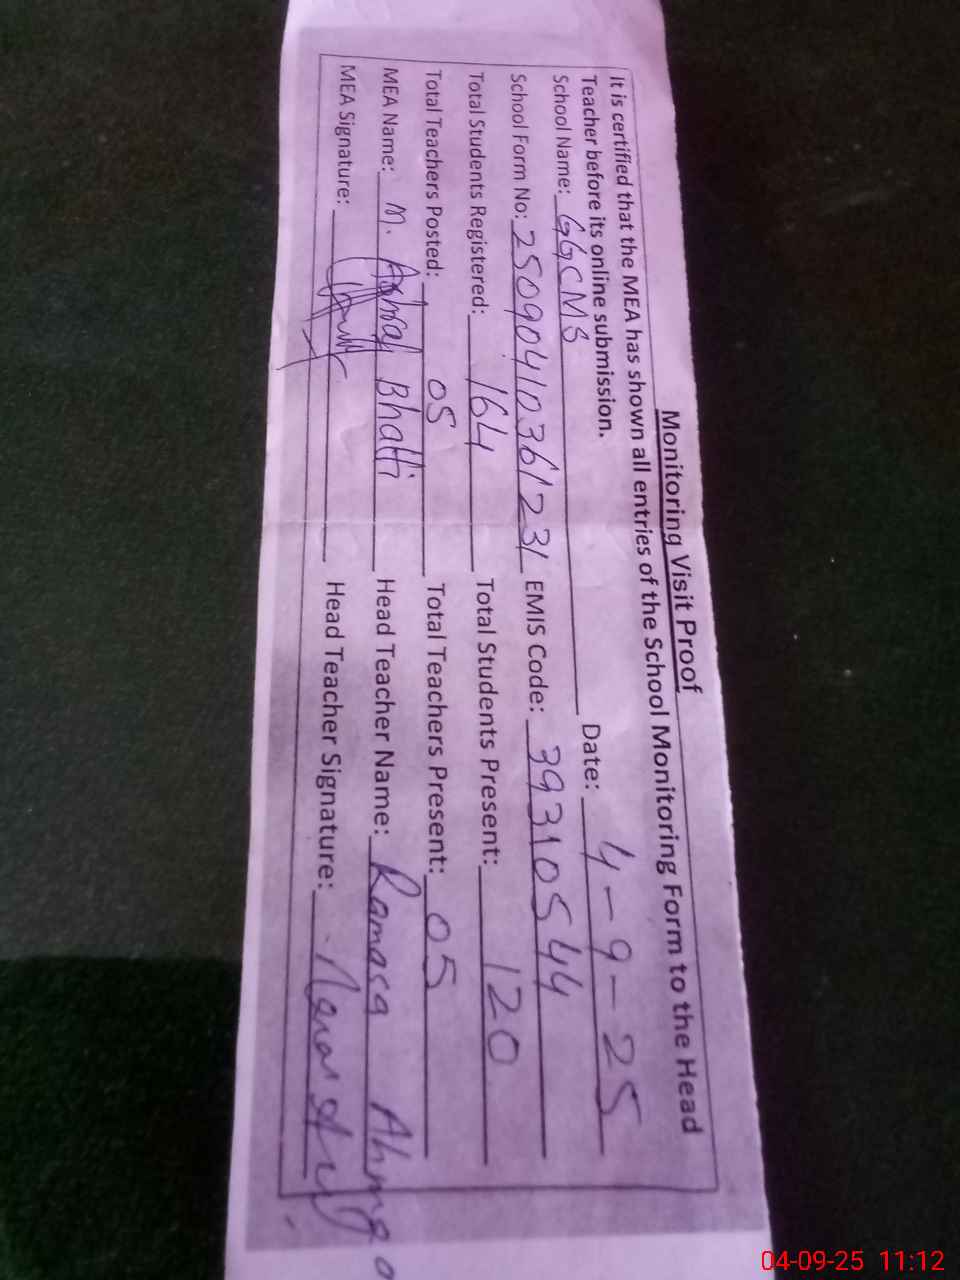 Monitoring Visit Proof
It is certified that the MEA has shown all entries of the School Monitoring Form to the Head
Teacher before its online submission.
School Name: GGCMS Date: 4-9-25
School Form No: 25090410361231 EMIS Code: 39310544
Total Students Registered: 164 Total Students Present: 120
Total Teachers Posted: 05 Total Teachers Present: 05
MEA Name: M. Ashraf Bhatti Head Teacher Name:
MEA Signature: Head Teacher Signature:
04-09-25 11:12